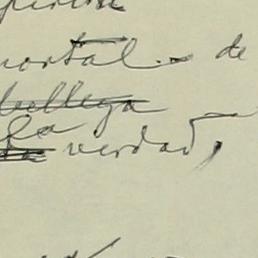 mortal. de
belleza
La
la verdad,